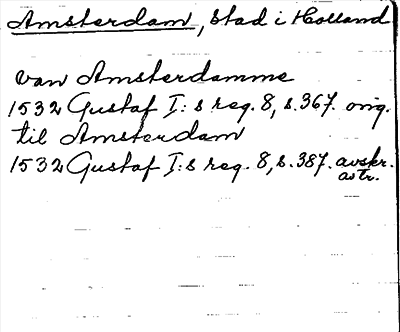 Amsterdam, stad i Holland
van Amsterdamme
1532 Gustaf I:s reg. 8, s. 367. orig.
til Amsterdam
1532 Gustaf I:s reg. 8, s. 387. avskr.
av tr.